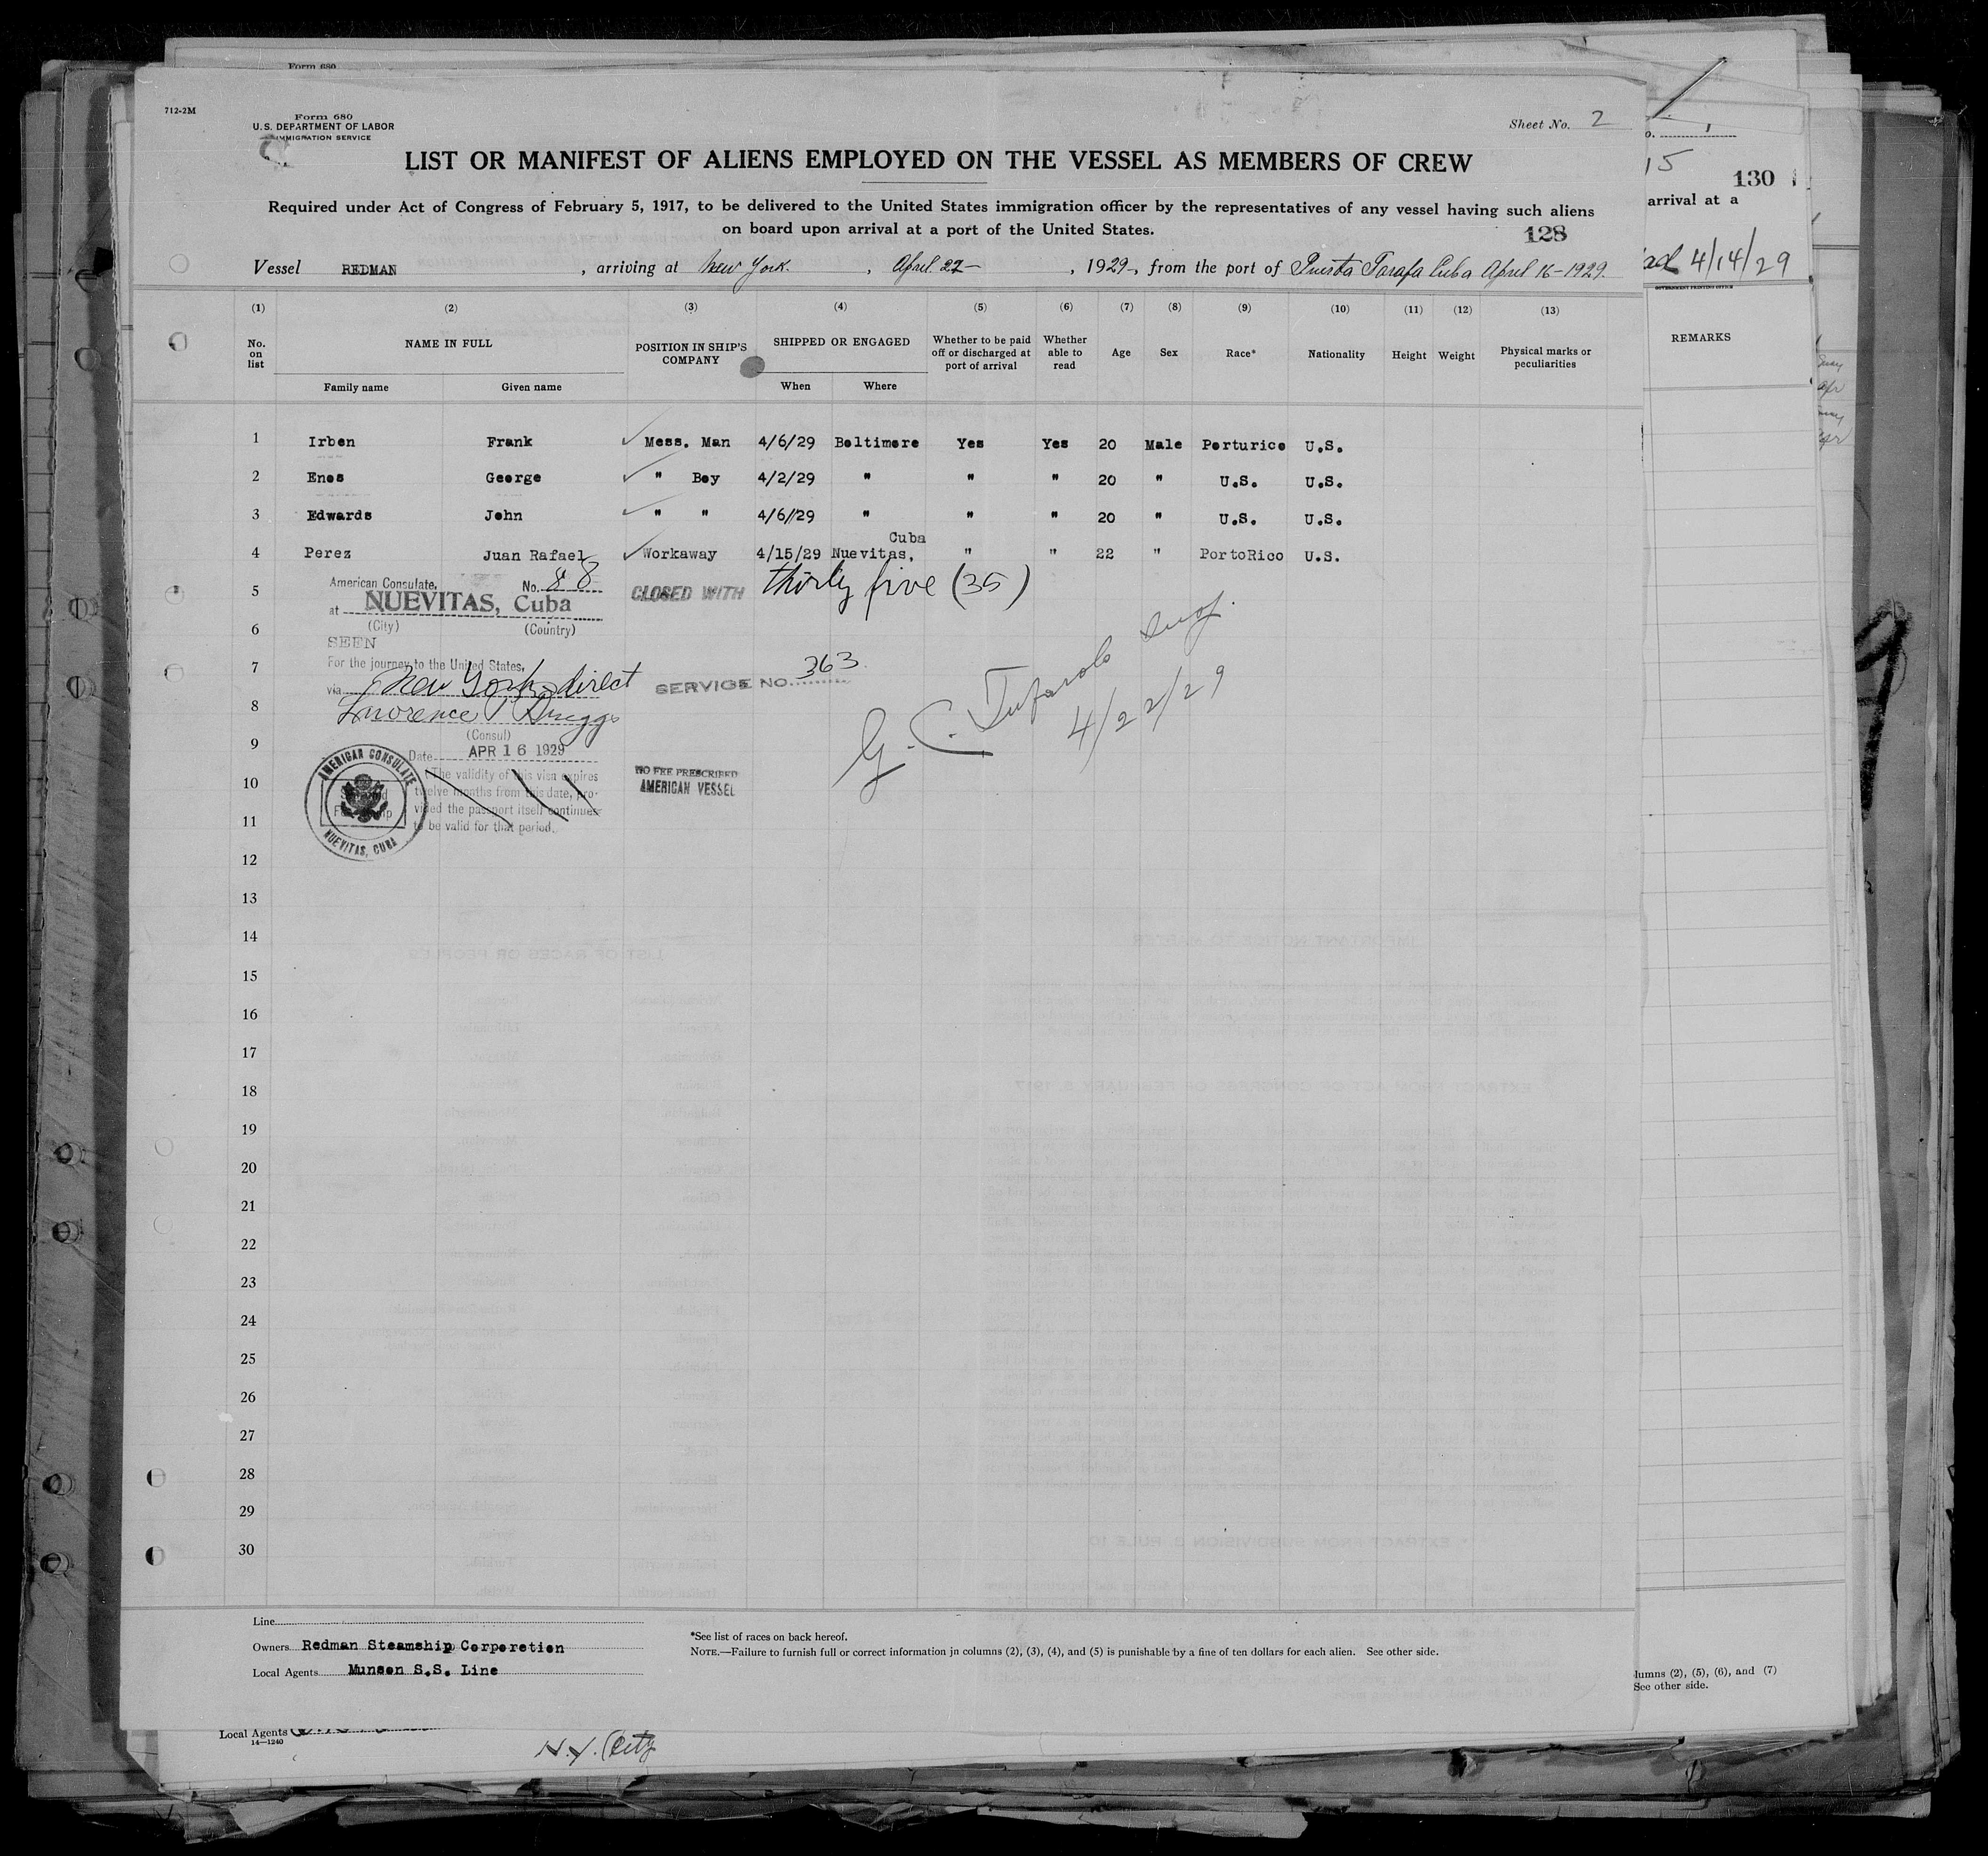 Form 680
712-2M
Form 680
U.S. DEPARTMENT OF LABOR
IMMIGRATION SERVICE
Sheet No. 2
LIST OR MANIFEST OF ALIENS EMPLOYED ON THE VESSEL AS MEMBERS OF CREW
Required under Act of Congress of February 5, 1917, to be delivered to the United States immigration officer by the representatives of any vessel having such aliens
on board upon arrival at a port of the United States.
128
Vessel REDMAN , arriving at New York. , April 22- , 1929, from the port of Puerta Tarafa Cuba April 16-1929.
(1) (2) (3) (4) (5) (6) (7) (8) (9) (10) (11) (12) (13)
No. on list NAME IN FULL POSITION IN SHIP'S COMPANY SHIPPED OR ENGAGED Whether to be paid off or discharged at port of arrival Whether able to read Age Sex Race* Nationality Height Weight Physical marks or peculiarities
Family name Given name When Where
1 Irben Frank Mess. Man 4/6/29 Beltimere Yes Yes 20 Male Perturice U.S.
2 Enes George " Bey 4/2/29 " " " 20 " U.S. U.S.
3 Edwards Jehn " " 4/6//29 " " " 20 " U.S. U.S.
Cuba
4 Perez Juan Rafael Workaway 4/15/29 Nuevitas, " " 22 " PortoRico U.S.
5
American Consulate, No. 88
at NUEVITAS, Cuba
(City) (Country)
CLOSED WITH thirty five (35)
6
SEEN
7
For the journey to the United States,
via New York direct
SERVICE NO. 363
8
(Consul)
9
Date APR 16 1929
G. C.
4/22/29
10
The validity of this visa expires
twelve months from this date, pro-
vided the passport itself continues
to be valid for that period.
AMERICAN CONSULATE
NUEVITAS, CUBA
NO FEE PRESCRIBED
AMERICAN VESSEL
11
12
13
14
15
16
17
18
19
20
21
22
23
24
25
26
27
28
29
30
Line
Owners Redman Steamship Corperetien
Local Agents Munsen S.S. Line
*See list of races on back hereof.
NOTE.—Failure to furnish full or correct information in columns (2), (3), (4), and (5) is punishable by a fine of ten dollars for each alien. See other side.
15
130
arrival at a
4/14/29
GOVERNMENT PRINTING OFFICE
REMARKS
lumns (2), (5), (6), and (7)
See other side.
Local Agents
14—1240
N.Y. City